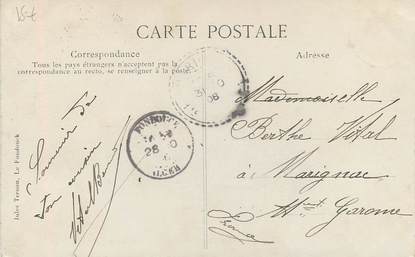 15€
CARTE POSTALE
Correspondance
Tous les pays étrangers n'acceptent pas la
correspondance au recto, se renseigner à la poste.
Adresse
Souvenir de
ton cousin
Vital
FONDOUCK
28
ALGER
08
Mademoiselle
Berthe Vital
à Marignac
Hte Garonne
France
Jules Terson, Le Fondouck